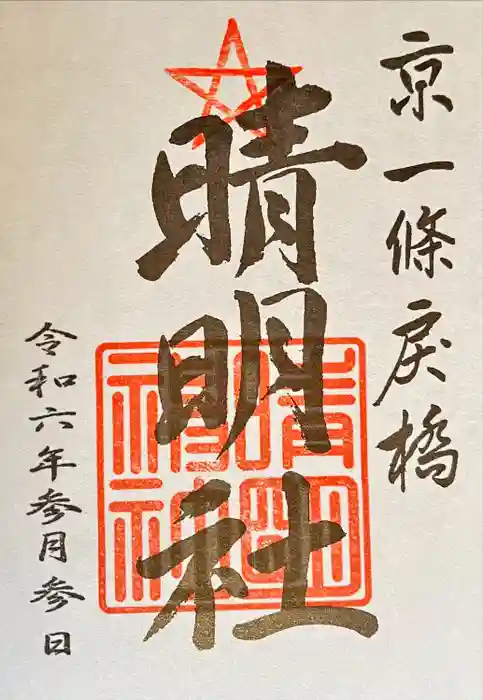 京一條戻橋
晴明社
晴明神社
令和六年参月参日